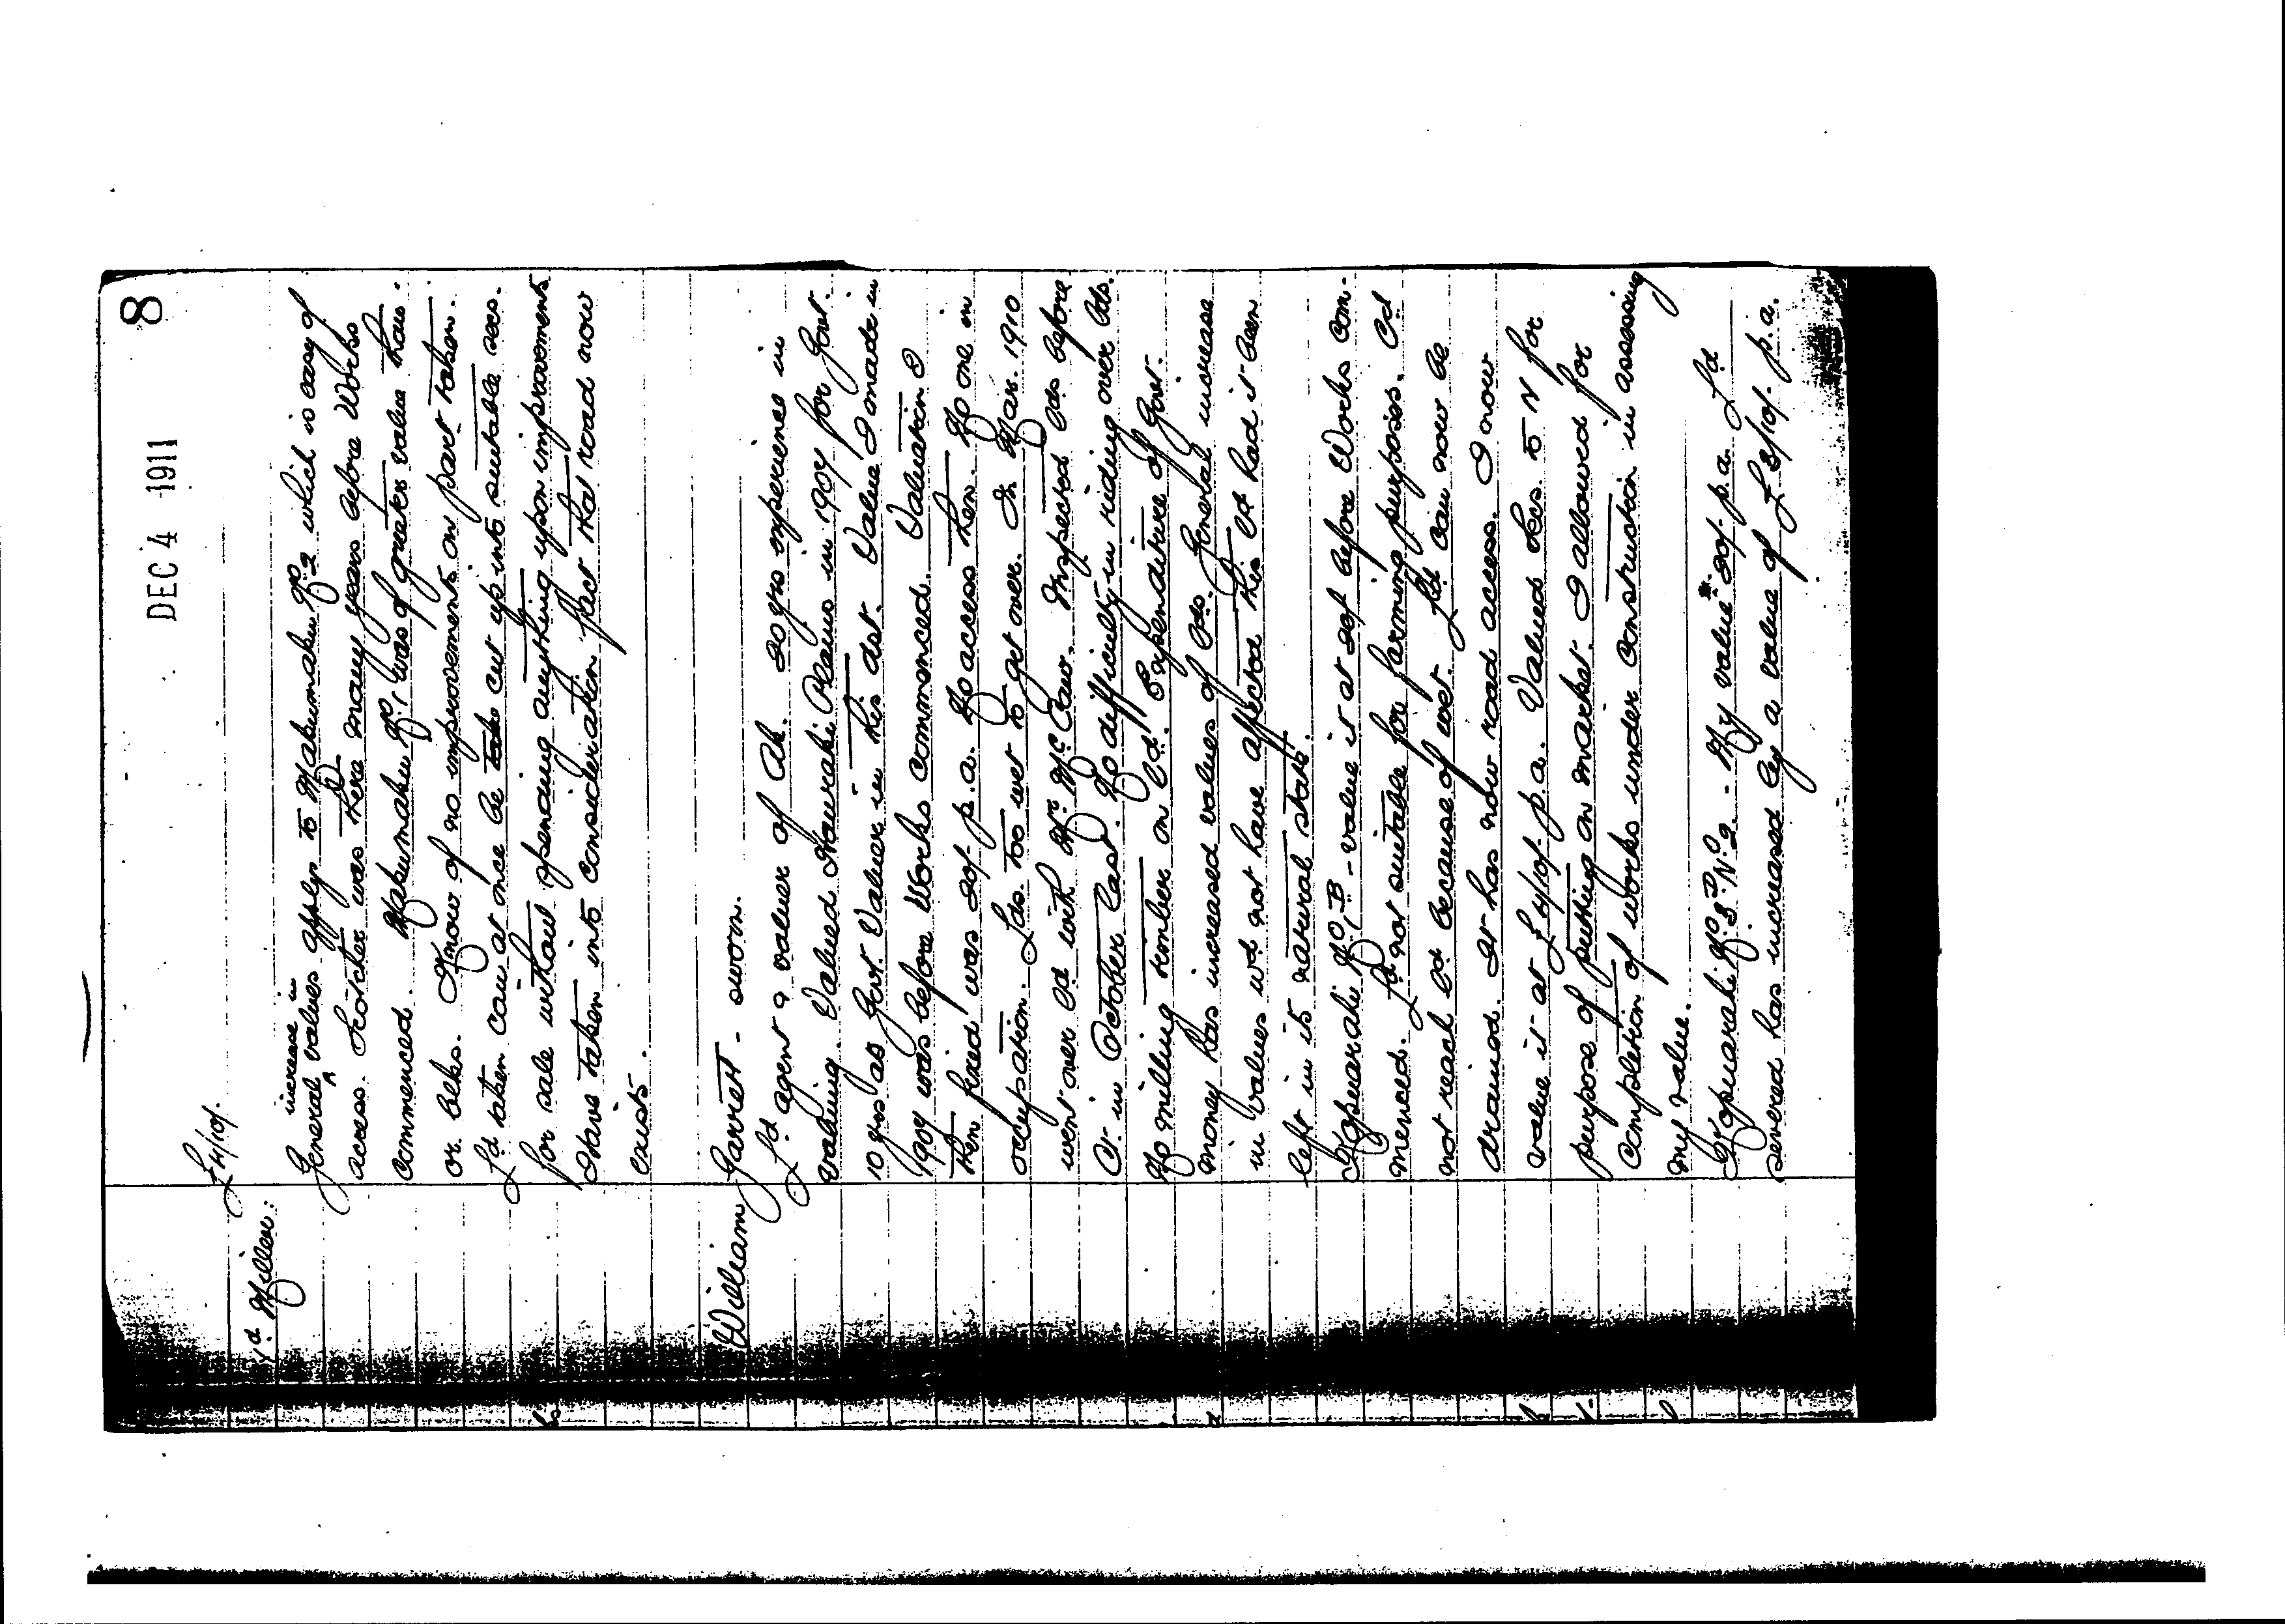 8
DEC 4 1911
£4/10/.
Jd Miller:
increase in
General values apply to Makumaku No 2 which is easy of
access. Scotcher was there many years before Works
commenced. Makumaku No 1 was of greater value than.
or blks. Know of no improvements on part taken.
Ld taken can at once be cut up into suitable secs.
for sale without spending anything upon improvements
Have taken into consideration fact that road now
exists.
William Garrett - sworn.
Ld agent & valuer of Ak. 20 yrs experience in
valuing. Valued Hauraki Plains in 1907 for Govt.
10 yrs as Govt Valuer in this dist. Value I made in
1907 was before Works commenced. Valuation I
then fixed was 20/- p.a. No access then. No one in
occupation. Lds. too wet to get over. In Mar. 1910
went over ld with Mr McCaw. Inspected lds before
Ct. in October last. No difficulty in riding over lds.
No milling timber on ld. Expenditure of Govt.
money has increased values of lds. General increase
in values wd not have affected this ld had it been
left in its natural state.
Kopuarahi No 1 B - value it at 20/ before Works com-
menced. Ld not suitable for farming purposes. Cd
not reach ld because of wet. Ld can now be
drained. It has now road access. I now
value it at £4/10/- p.a. Valued secs. to N for
purpose of putting on market. I allowed for
completion of works under construction in assessing
my value.
Kopuarahi No 3 D No 2 - My value 20/- p.a. Ld
severed has increased by a value of £3/10/- p.a.